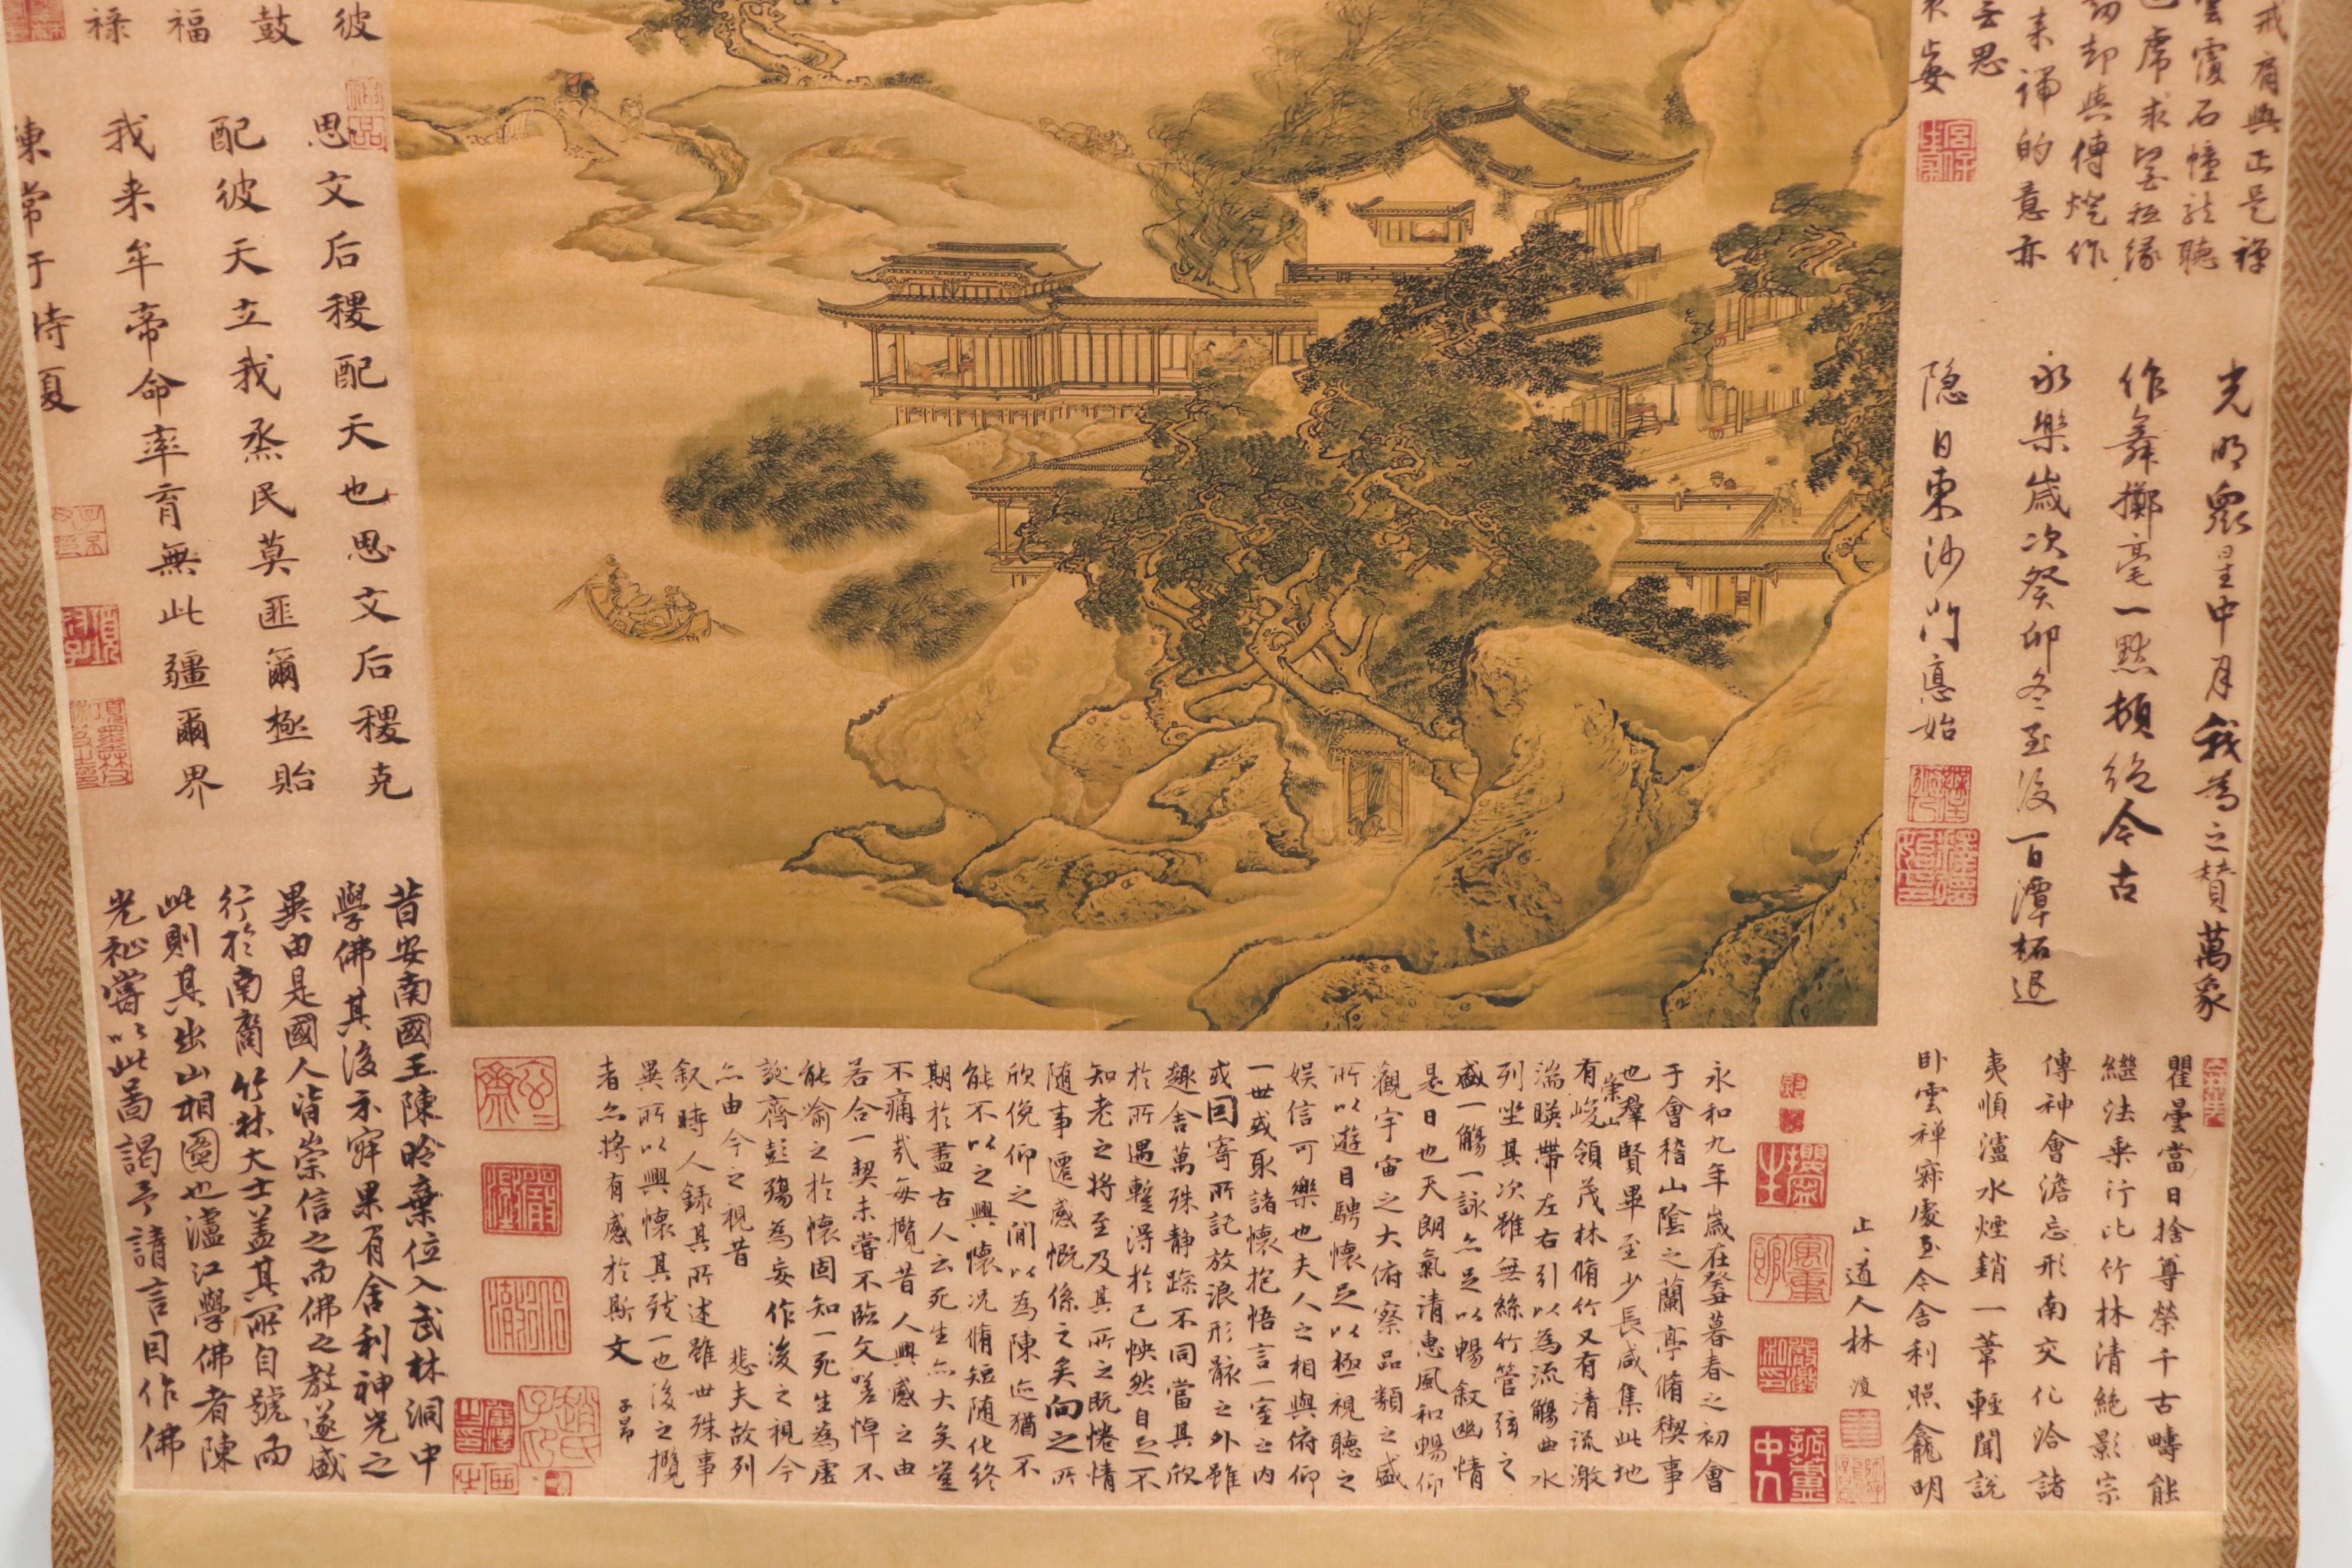 戒肩與正是禪
却與傳燈作
的意亦
光明衆星中月我為之賛萬象
作舞擲毫一點頓絕今古
永樂歲次癸卯冬至後一日潭柘退
隐日東沙門悳始
瞿曇當日捨尊榮千古疇能
繼法乘行比竹林清絕影宗
傳神會澹忘形南交化洽諸
夷順瀘水煙銷一葦輕聞說
卧雲禅寂處至今舍利照龕明
道人林復
永和九年歲在癸丑暮春之初會
于會稽山陰之蘭亭脩稧事
也羣賢畢至少長咸集此地
有崇山峻領茂林脩竹又有清流激
湍暎帶左右引以為流觴曲水
列坐其次雖無絲竹管弦之
盛一觴一詠亦足以暢叙幽情
是日也天朗氣清惠風和暢仰
觀宇宙之大俯察品類之盛
所以遊目騁懷足以極視聽之
娛信可樂也夫人之相與俯仰
一世或取諸懷抱悟言一室之内
或因寄所託放浪形骸之外雖
趣舍萬殊静躁不同當其欣
於所遇暫得於己怏然自足不
知老之将至及其所之既惓情
随事遷感慨係之矣向之所
欣俛仰之間以為陳迹猶不
能不以之興懷況脩短随化終
期於盡古人云死生亦大矣豈
不痛哉每攬昔人興感之由
若合一契未嘗不臨文嗟悼不
能喻之於懷固知一死生為虛
誕齊彭殤為妄作後之視今
亦由今之視昔 悲夫故列
叙時人錄其所述雖世殊事
異所以興懷其致一也後之攬
者亦將有感於斯文 子昂
彼
鼓
福
祿
思文后稷配天也思文后稷克
配彼天立我烝民莫匪爾極貽
我来牟帝命率育無此疆爾界
陳常于時夏
昔安南國王陳昤棄位入武林洞中
學佛其後示寂果有舍利神光之
異由是國人皆崇信之而佛之教遂盛
行於南裔竹林大士盖其所自號而
此則其出山相圖也瀘江學佛者陳
光祉嘗以此啚謁予請言因作佛